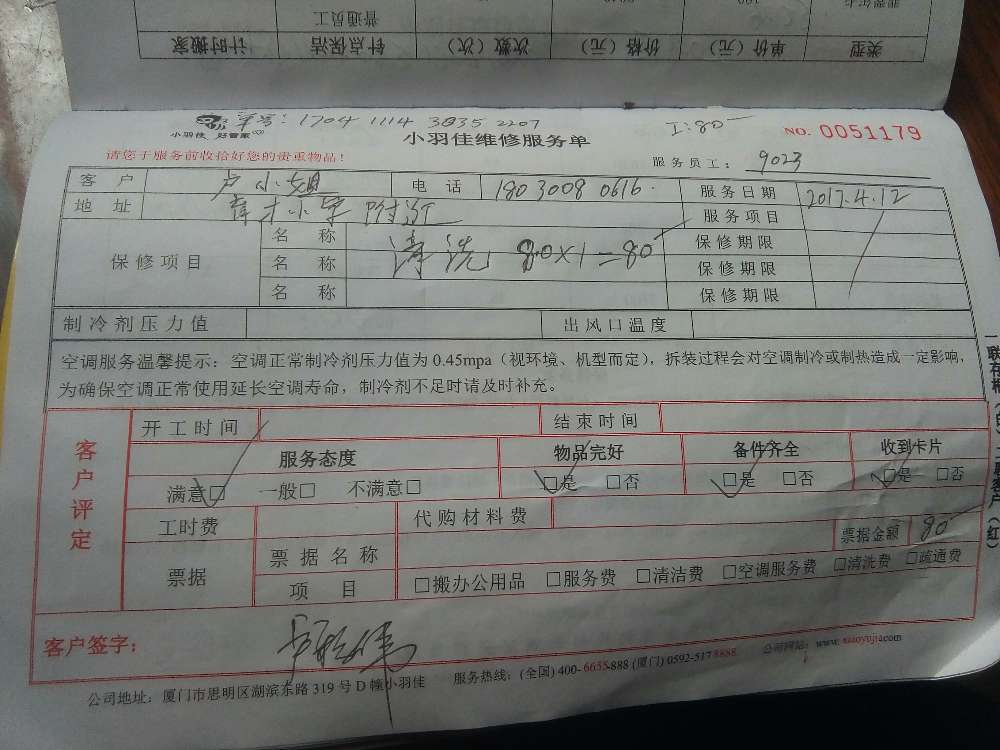 类型 单价(元) 价格(元) 次数(次) 针点保洁 计时搬家
普通员工
单号:1704 1114 3035 2207 I:80
小羽佳 好管家
小羽佳维修服务单 NO. 0051179
请您于服务前收拾好您的贵重物品! 服务员工: 9023
客户 卢小姐 电话 180 3008 0616. 服务日期 2017.4.12
地址 育才小学附近 服务项目
保修项目 名称 清洗 80×1=80 保修期限
名称 保修期限
名称 保修期限
制冷剂压力值 出风口温度
空调服务温馨提示:空调正常制冷剂压力值为0.45mpa(视环境、机型而定),拆装过程会对空调制冷或制热造成一定影响,
为确保空调正常使用延长空调寿命,制冷剂不足时请及时补充。
客户评定
开工时间 结束时间
服务态度 物品完好 备件齐全 收到卡片
满意□ 一般□ 不满意□ □是 □否 □是 □否 □是 □否
工时费 代购材料费
票据 票据名称 票据金额 80
项目 □搬办公用品 □服务费 □清洁费 □空调服务费 □清洗费 □疏通费
客户签字:
公司地址:厦门市思明区湖滨东路319号D幢小羽佳 服务热线:(全国)400-6655-888 (厦门)0592-5178888 公司网站:www.xiaoyujia.com